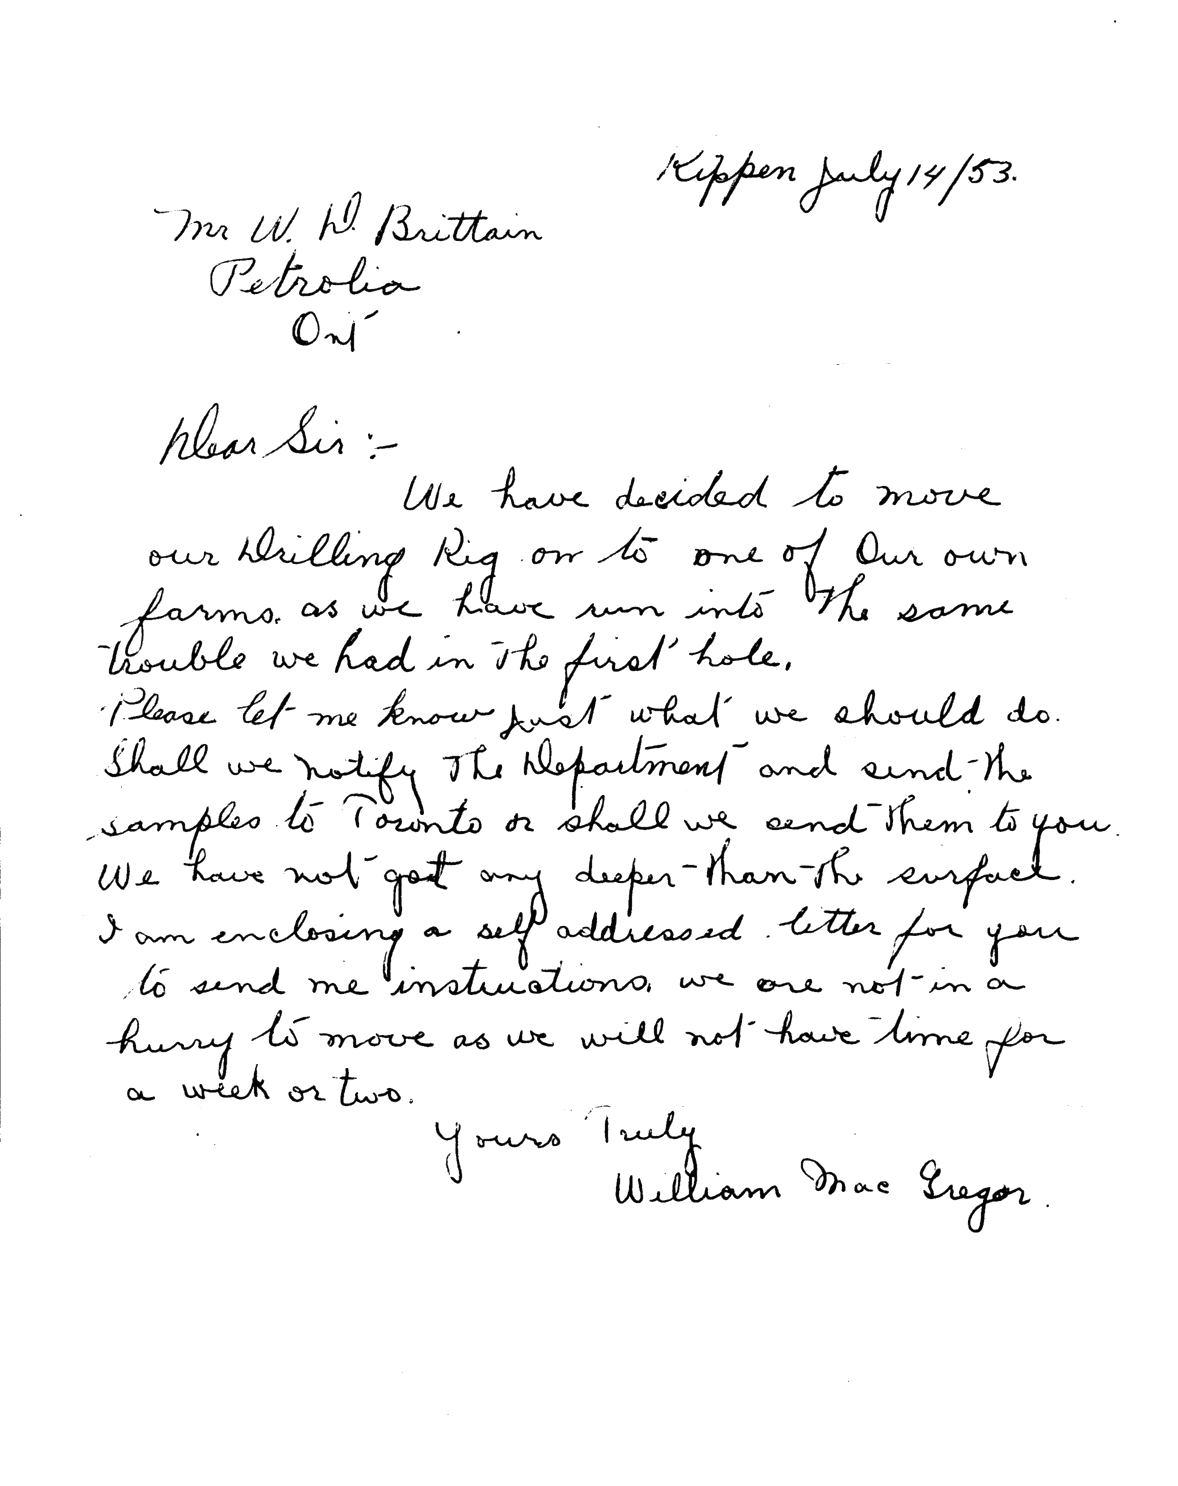 Kippen July 14/53.
Mr W. D. Brittain
Petrolia
Ont
Dear Sir :-
We have decided to move
our Drilling Rig on to one of Our own
farms. as we have run into The same
trouble we had in The first hole.
Please let me know just what we should do.
Shall we notify The Department and send The
samples to Toronto or shall we send Them to you.
We have not got any deeper Than The surface.
I am enclosing a self addressed letter for you
to send me instructions. we are not in a
hurry to move as we will not have time for
a week or two.
Yours Truly
William Mac Gregor.